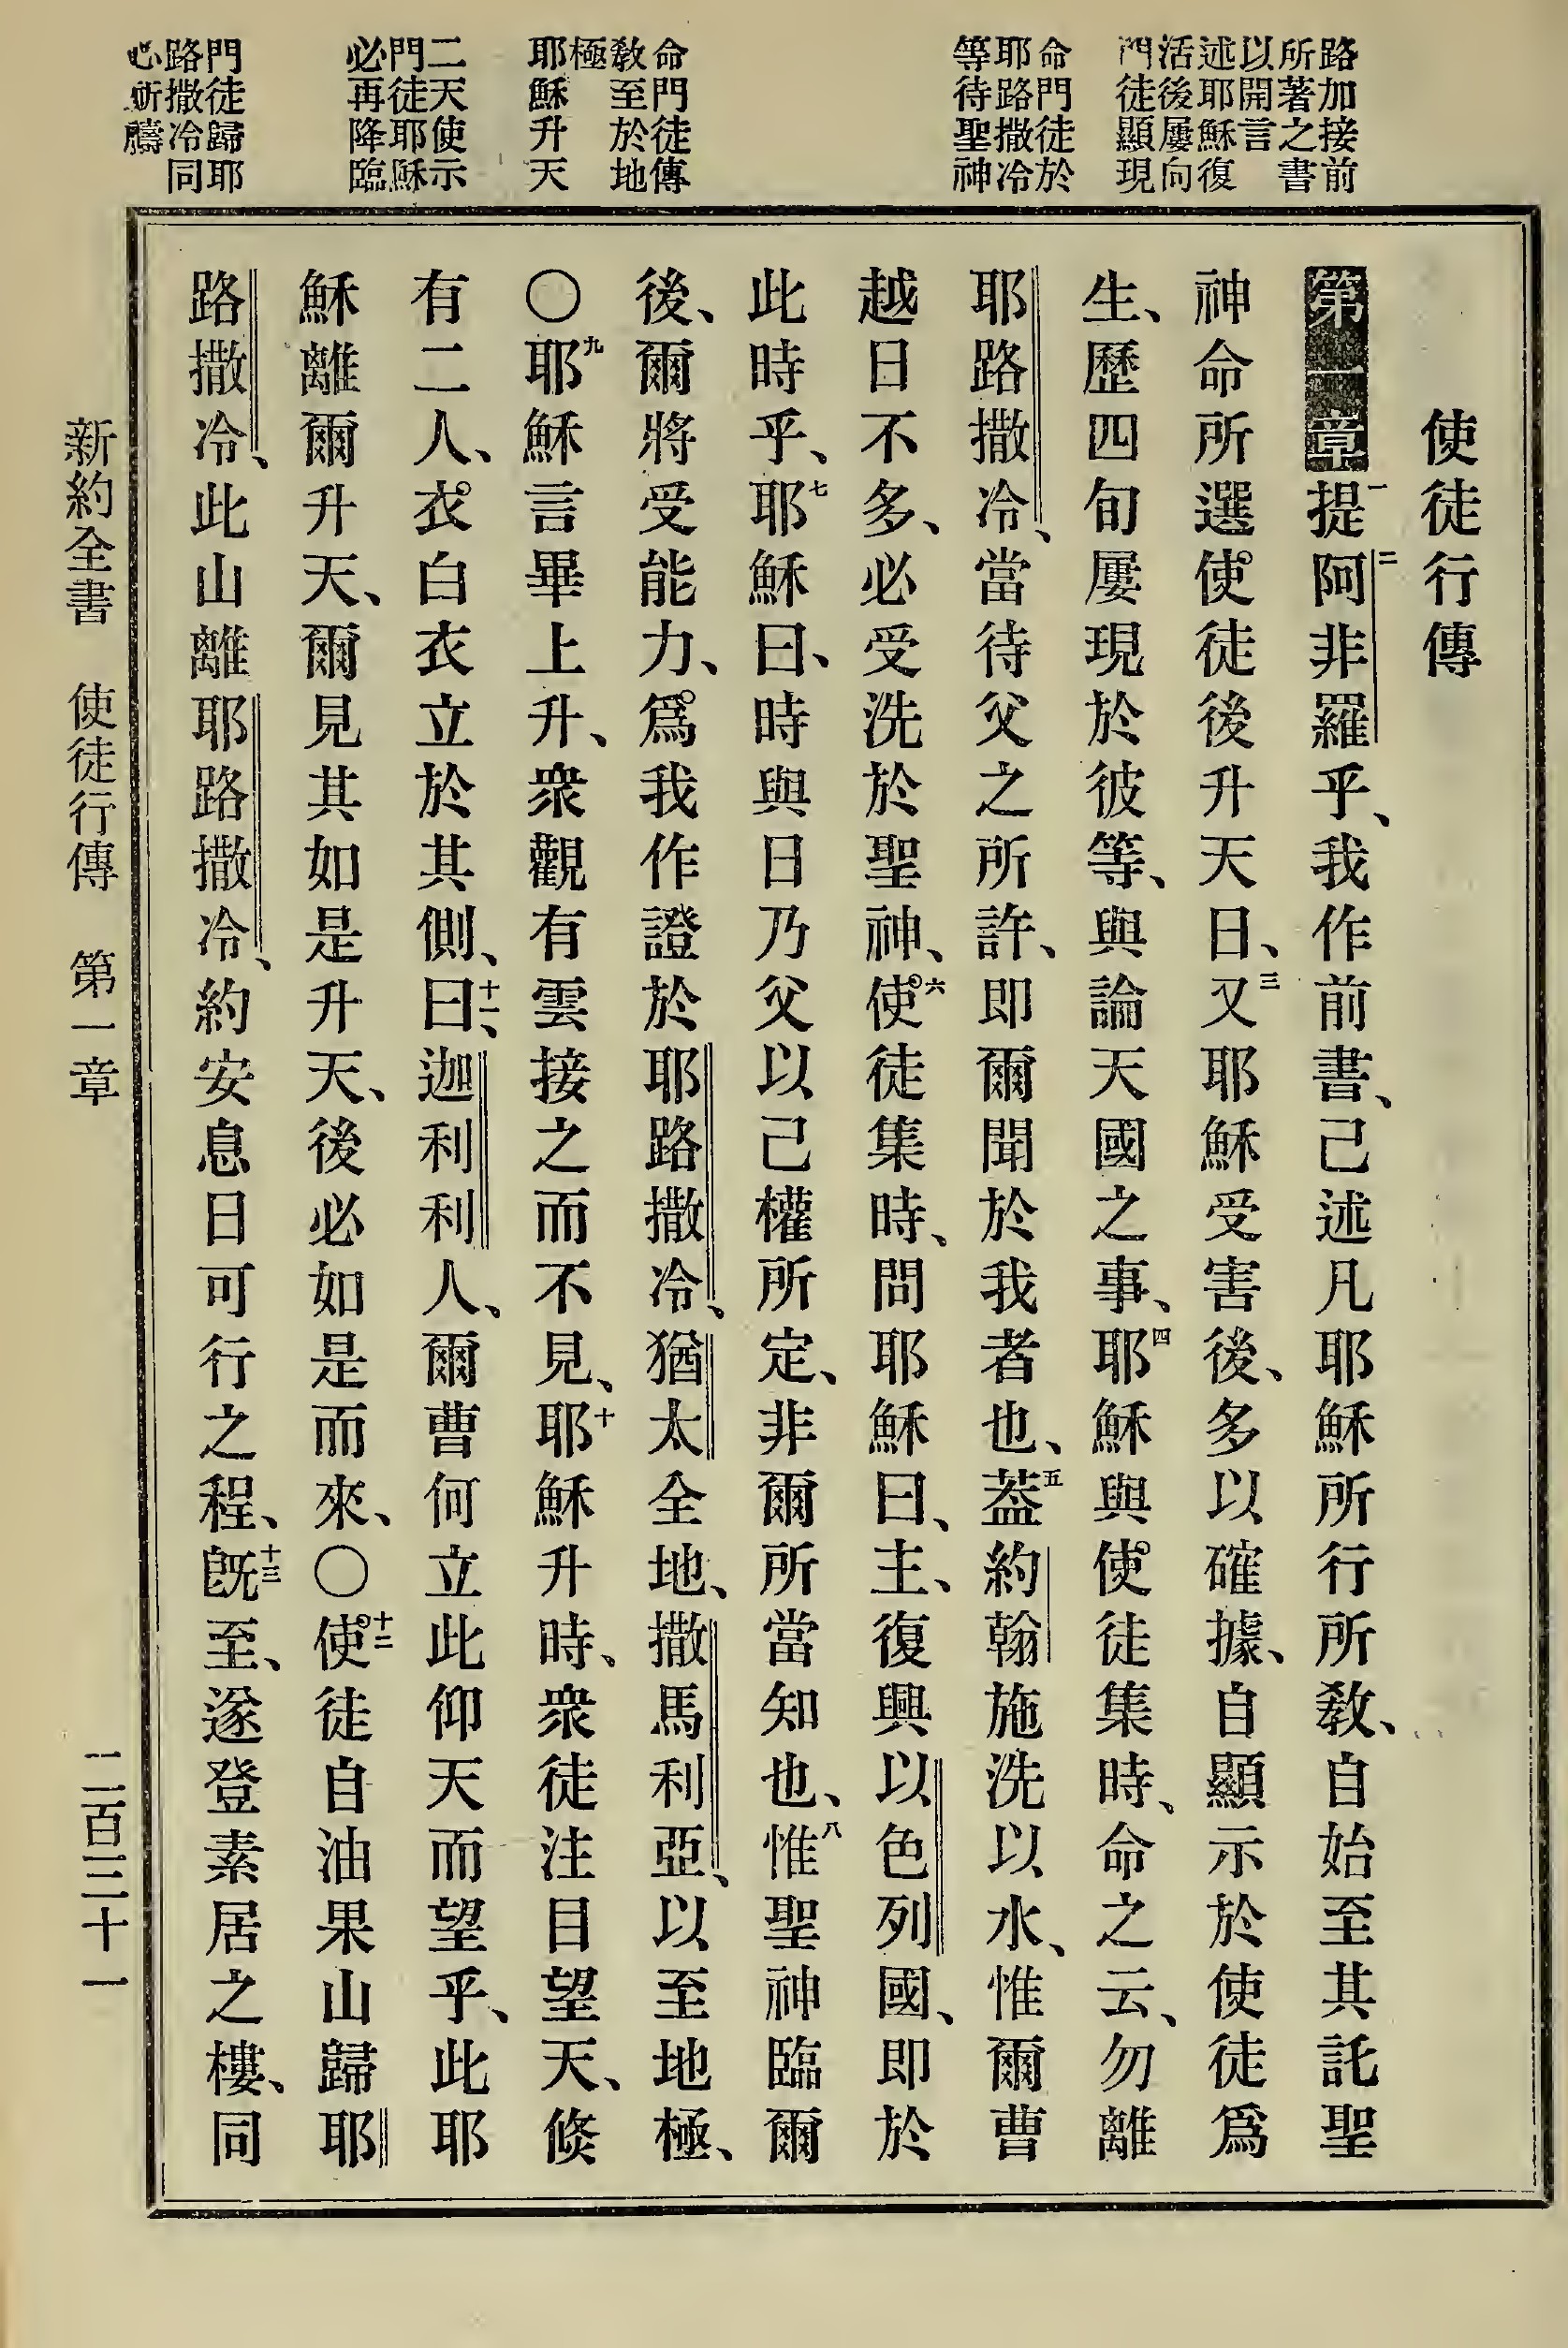 路加接前
所著之書
以開言
述耶穌復
活後屢向
門徒顯現
命門徒於
耶路撒冷
等待聖神
命門徒傳
敎至於地
極
耶穌升天
二天使示
門徒耶穌
必再降臨
門徒歸耶
路撒冷同
心祈禱
使徒行傳
第一章一提二阿非羅乎、我作前書、己述凡耶穌所行所敎、自始至其託聖
神命所選使徒後升天日、三又耶穌受害後、多以確據、自顯示於使徒爲
生、歷四旬屢現於彼等、與論天國之事、四耶穌與使徒集時、命之云、勿離
耶路撒冷、當待父之所許、即爾聞於我者也、五蓋約翰施洗以水、惟爾曹
越日不多、必受洗於聖神、六使徒集時、問耶穌曰、主、復興以色列國、即於
此時乎、七耶穌曰、時與日乃父以己權所定、非爾所當知也、八惟聖神臨爾
後、爾將受能力、爲我作證於耶路撒冷、猶太全地、撒馬利亞、以至地極、
〇九耶穌言畢上升、衆觀有雲接之而不見、十耶穌升時、衆徒注目望天、倐
有二人、衣白衣立於其側、十一曰、迦利利人、爾曹何立此仰天而望乎、此耶
穌離爾升天、爾見其如是升天、後必如是而來、〇十二使徒自油果山歸耶
路撒冷、此山離耶路撒冷、約安息日可行之程、十三旣至、遂登素居之樓、同
新約全書 使徒行傳 第一章 二百三十一